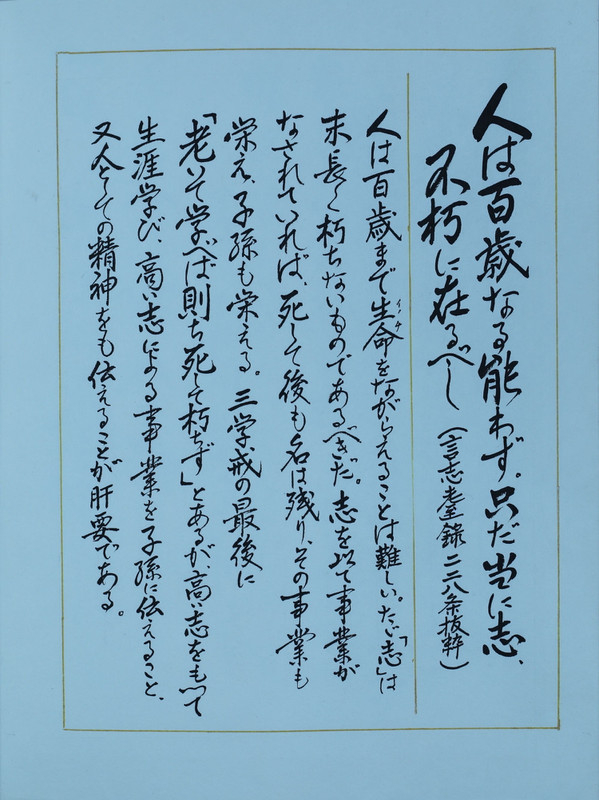 人は百歳なる能わず。只だ当に志、
不朽に在るべし（言志耋録 二二八条抜粋）
人は百歳まで生命をながらえることは難しい。ただ「志」は
イノチ
末長く朽ちないものであるべきだ。志を以て事業が
なされていれば、死して後も名は残り、その事業も
栄え、子孫も栄える。三学戒の最後に
「老いて学べば則ち死して朽ちず」とあるが、高い志をもって
生涯学び、高い志による事業を子孫に伝えること、
又人としての精神をも伝えることが肝要である。